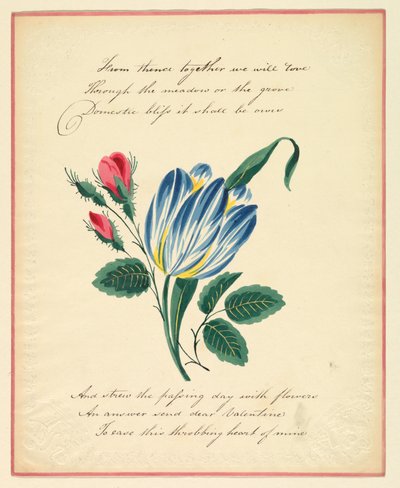 From thence together we will rove
Through the meadow or the grove
Domestic bliſs it shall be ours
And strew the paſsing day with flowers
An answer send dear Valentine
To ease this throbbing heart of mine